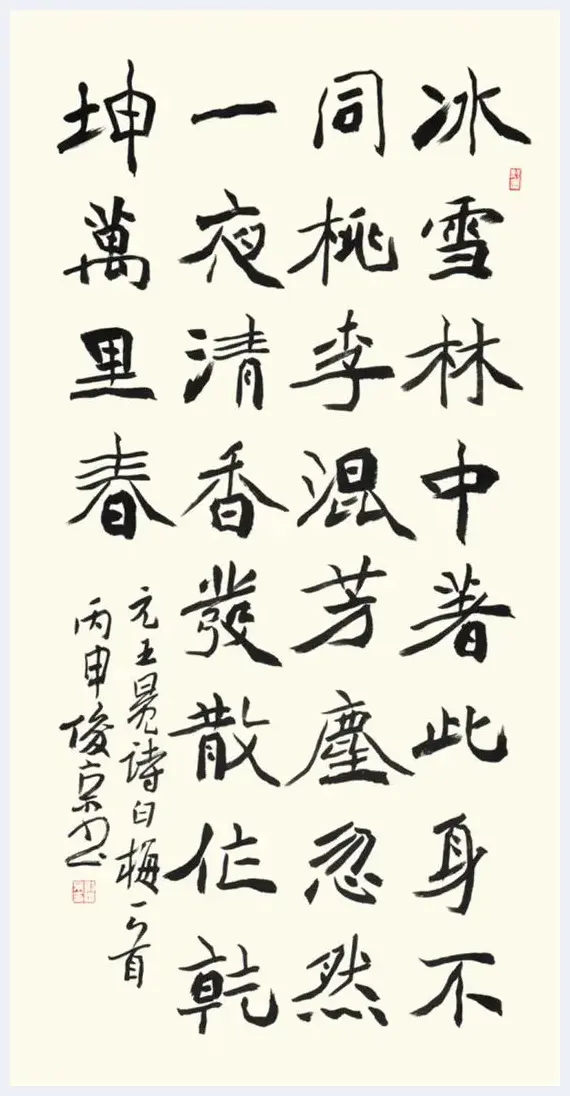 冰雪林中著此身不
同桃李混芳塵忽然
一夜清香發散作乾
坤萬里春
元王冕詩白梅一首
丙申俊京书